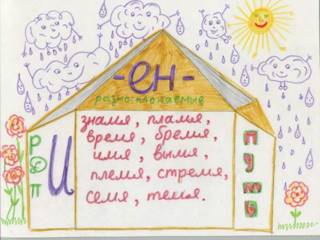 -ен-
разносклоняемые
Р
Д
П
И
знамя, пламя,
время, бремя,
имя, вымя,
племя, стремя,
семя, темя.
путь